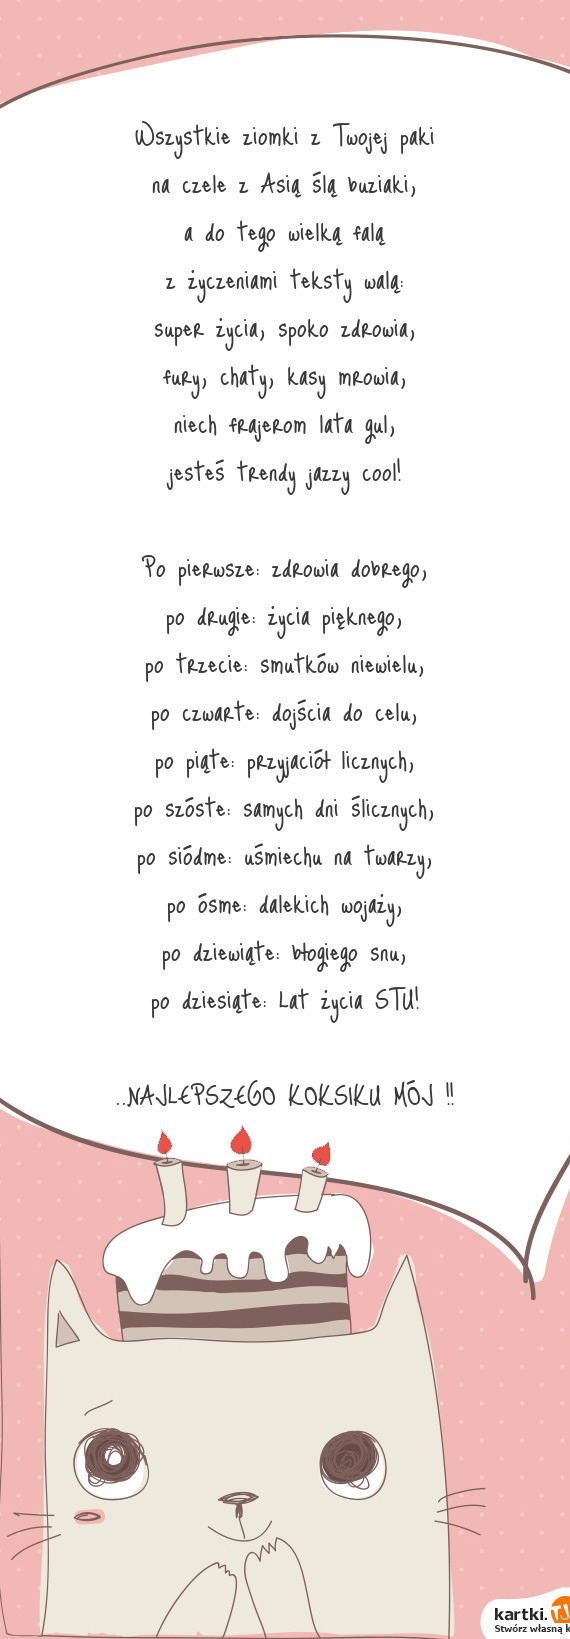 Wszystkie ziomki z Twojej paki
na czele z Asią ślą buziaki,
a do tego wielką falą
z życzeniami teksty walą:
super życia, spoko zdrowia,
fury, chaty, kasy mrowia,
niech frajerom lata gul,
jesteś trendy jazzy cool!
Po pierwsze: zdrowia dobrego,
po drugie: życia pięknego,
po trzecie: smutków niewielu,
po czwarte: dojścia do celu,
po piąte: przyjaciół licznych,
po szóste: samych dni ślicznych,
po siódme: uśmiechu na twarzy,
po ósme: dalekich wojaży,
po dziewiąte: błogiego snu,
po dziesiąte: Lat życia STU!
..NAJLEPSZEGO KOKSIKU MÓJ !!
kartki.TJ
Stwórz własną k